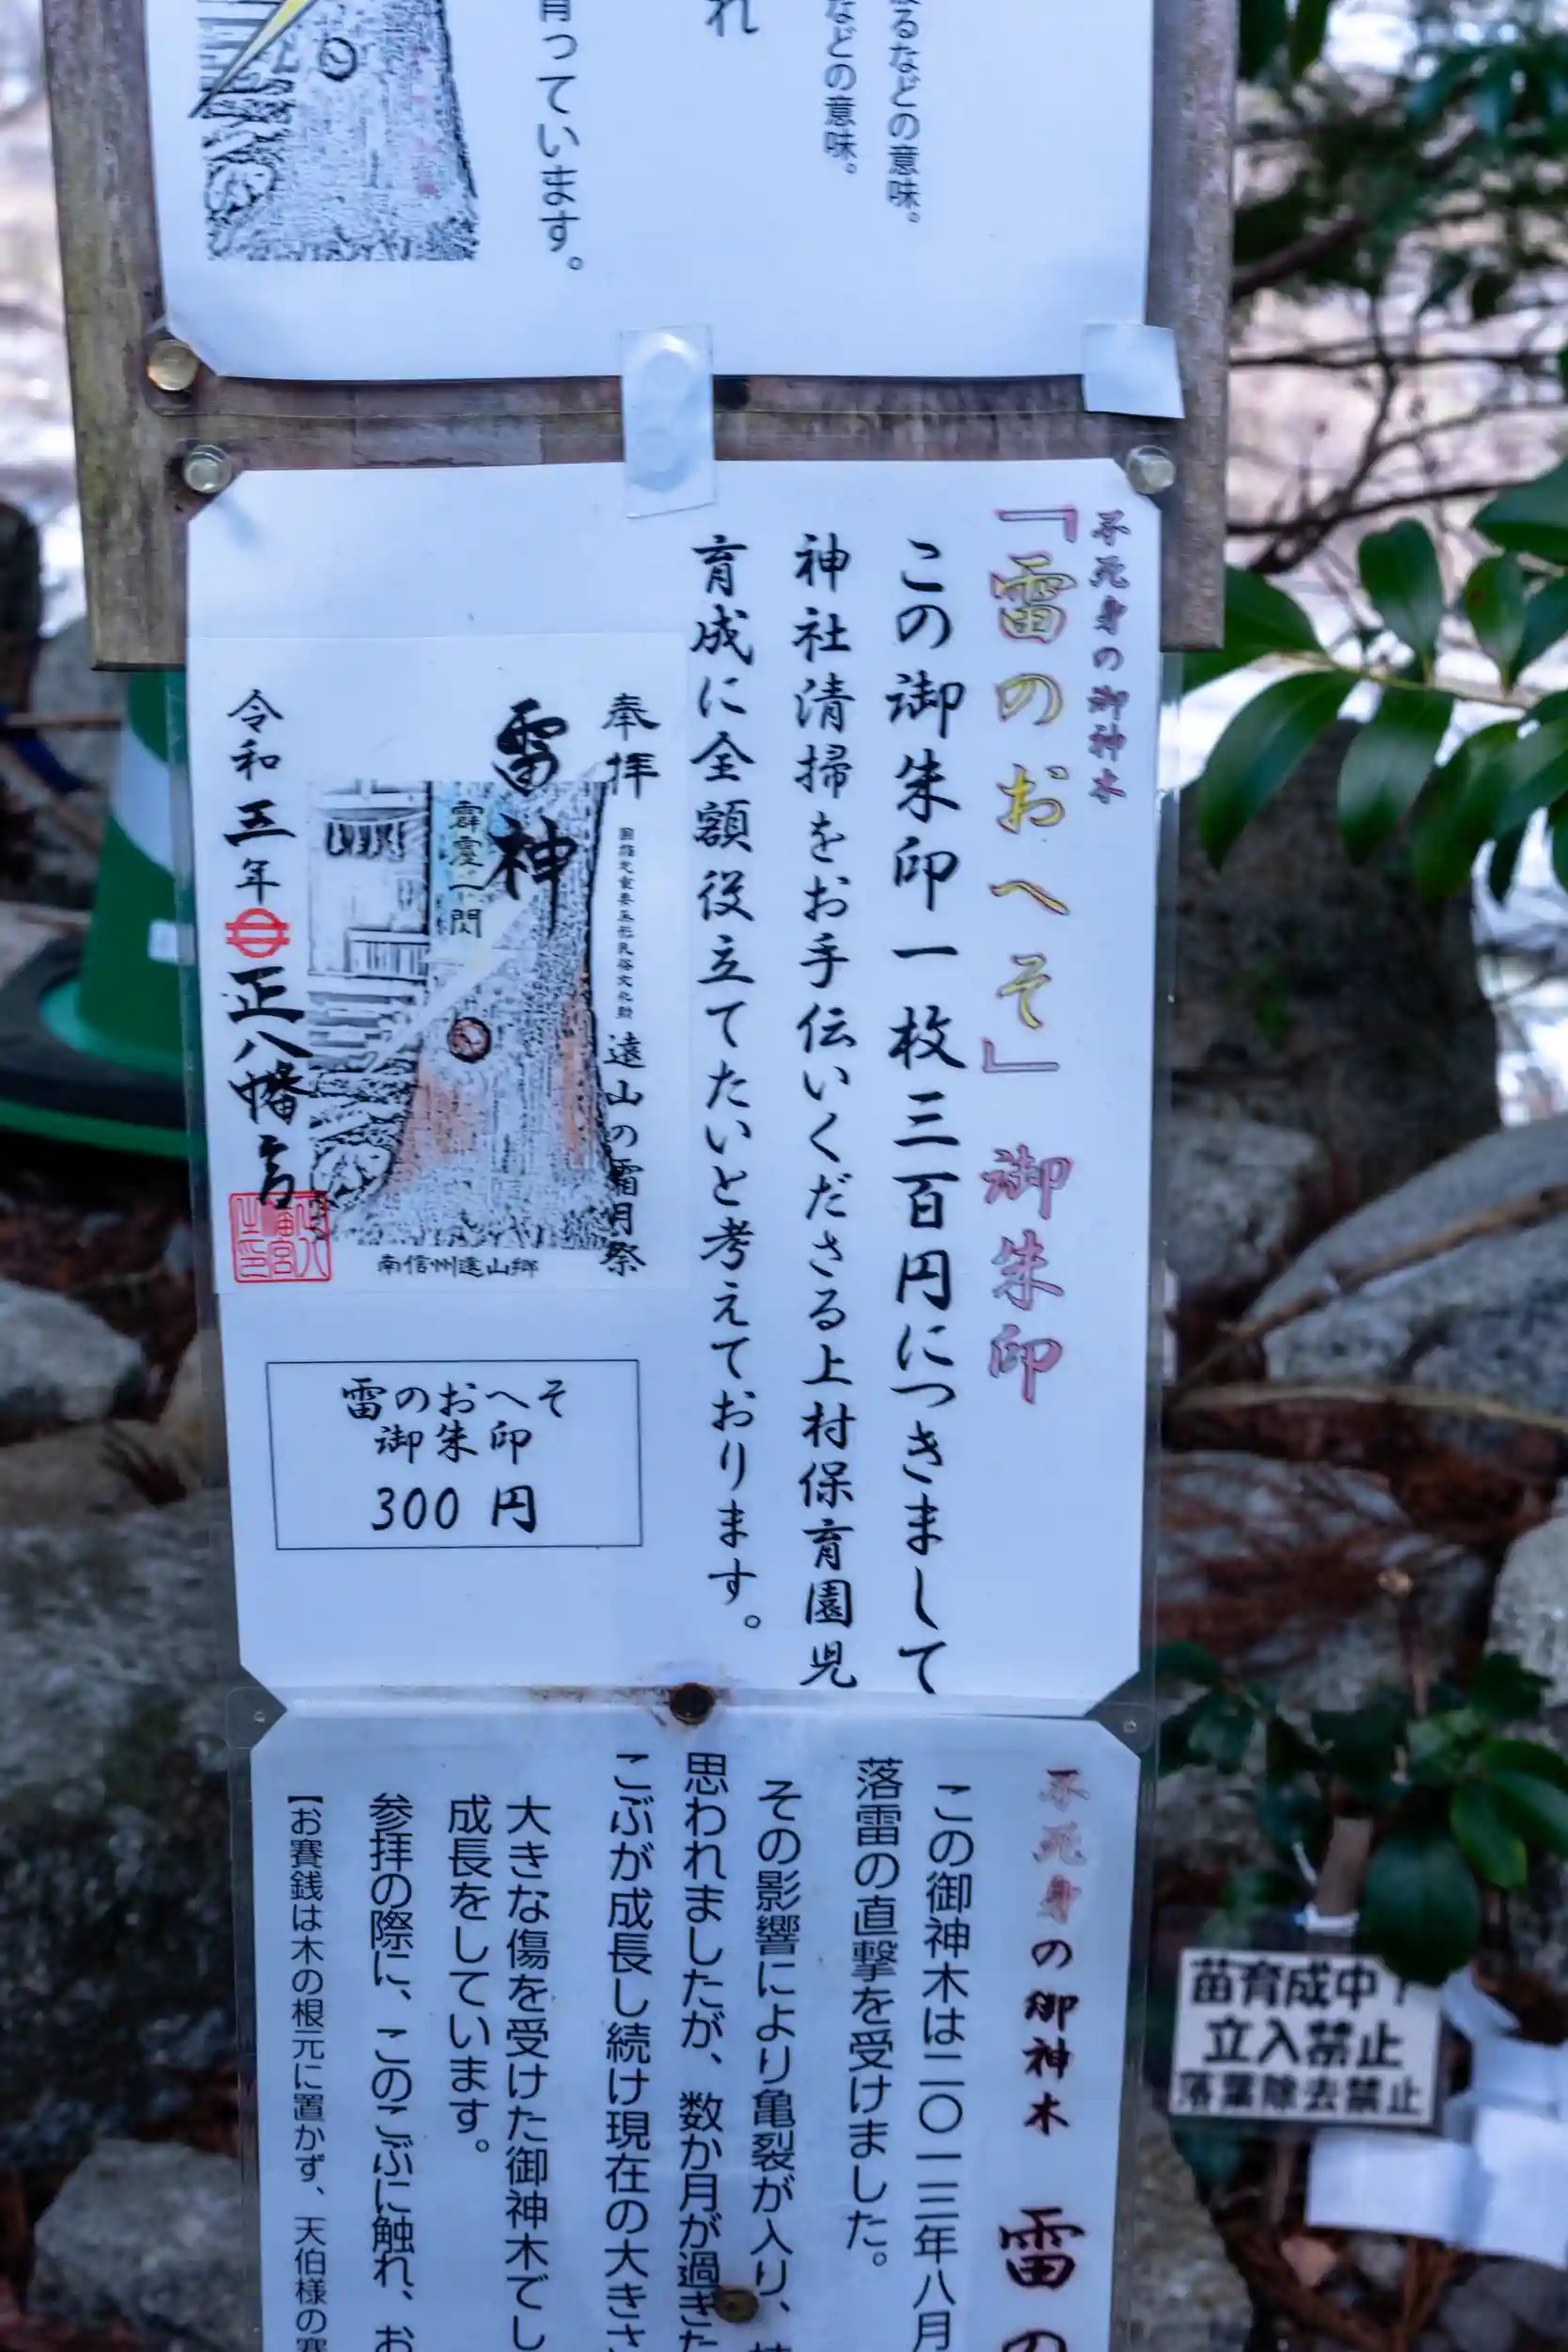 るなどの意味。
などの意味。
れ
育っています。
不死身の御神木
『雷のおへそ』御朱印
この御朱印一枚三百円につきまして
神社清掃をお手伝いくださる上村保育園児
育成に全額役立てたいと考えております。
奉拝
国指定重要無形民俗文化財 遠山の霜月祭
雷神
霹靂一閃
南信州遠山郷
令和五年
正八幡宮
雷のおへそ
御朱印
300 円
不死身の御神木 雷の
この御神木は二〇一三年八月
落雷の直撃を受けました。
その影響により亀裂が入り、
思われましたが、数か月が過ぎた
こぶが成長し続け現在の大きさ
大きな傷を受けた御神木でし
成長をしています。
参拝の際に、このこぶに触れ、お
【お賽銭は木の根元に置かず、天伯様の賽
苗育成中！
立入禁止
落葉除去禁止